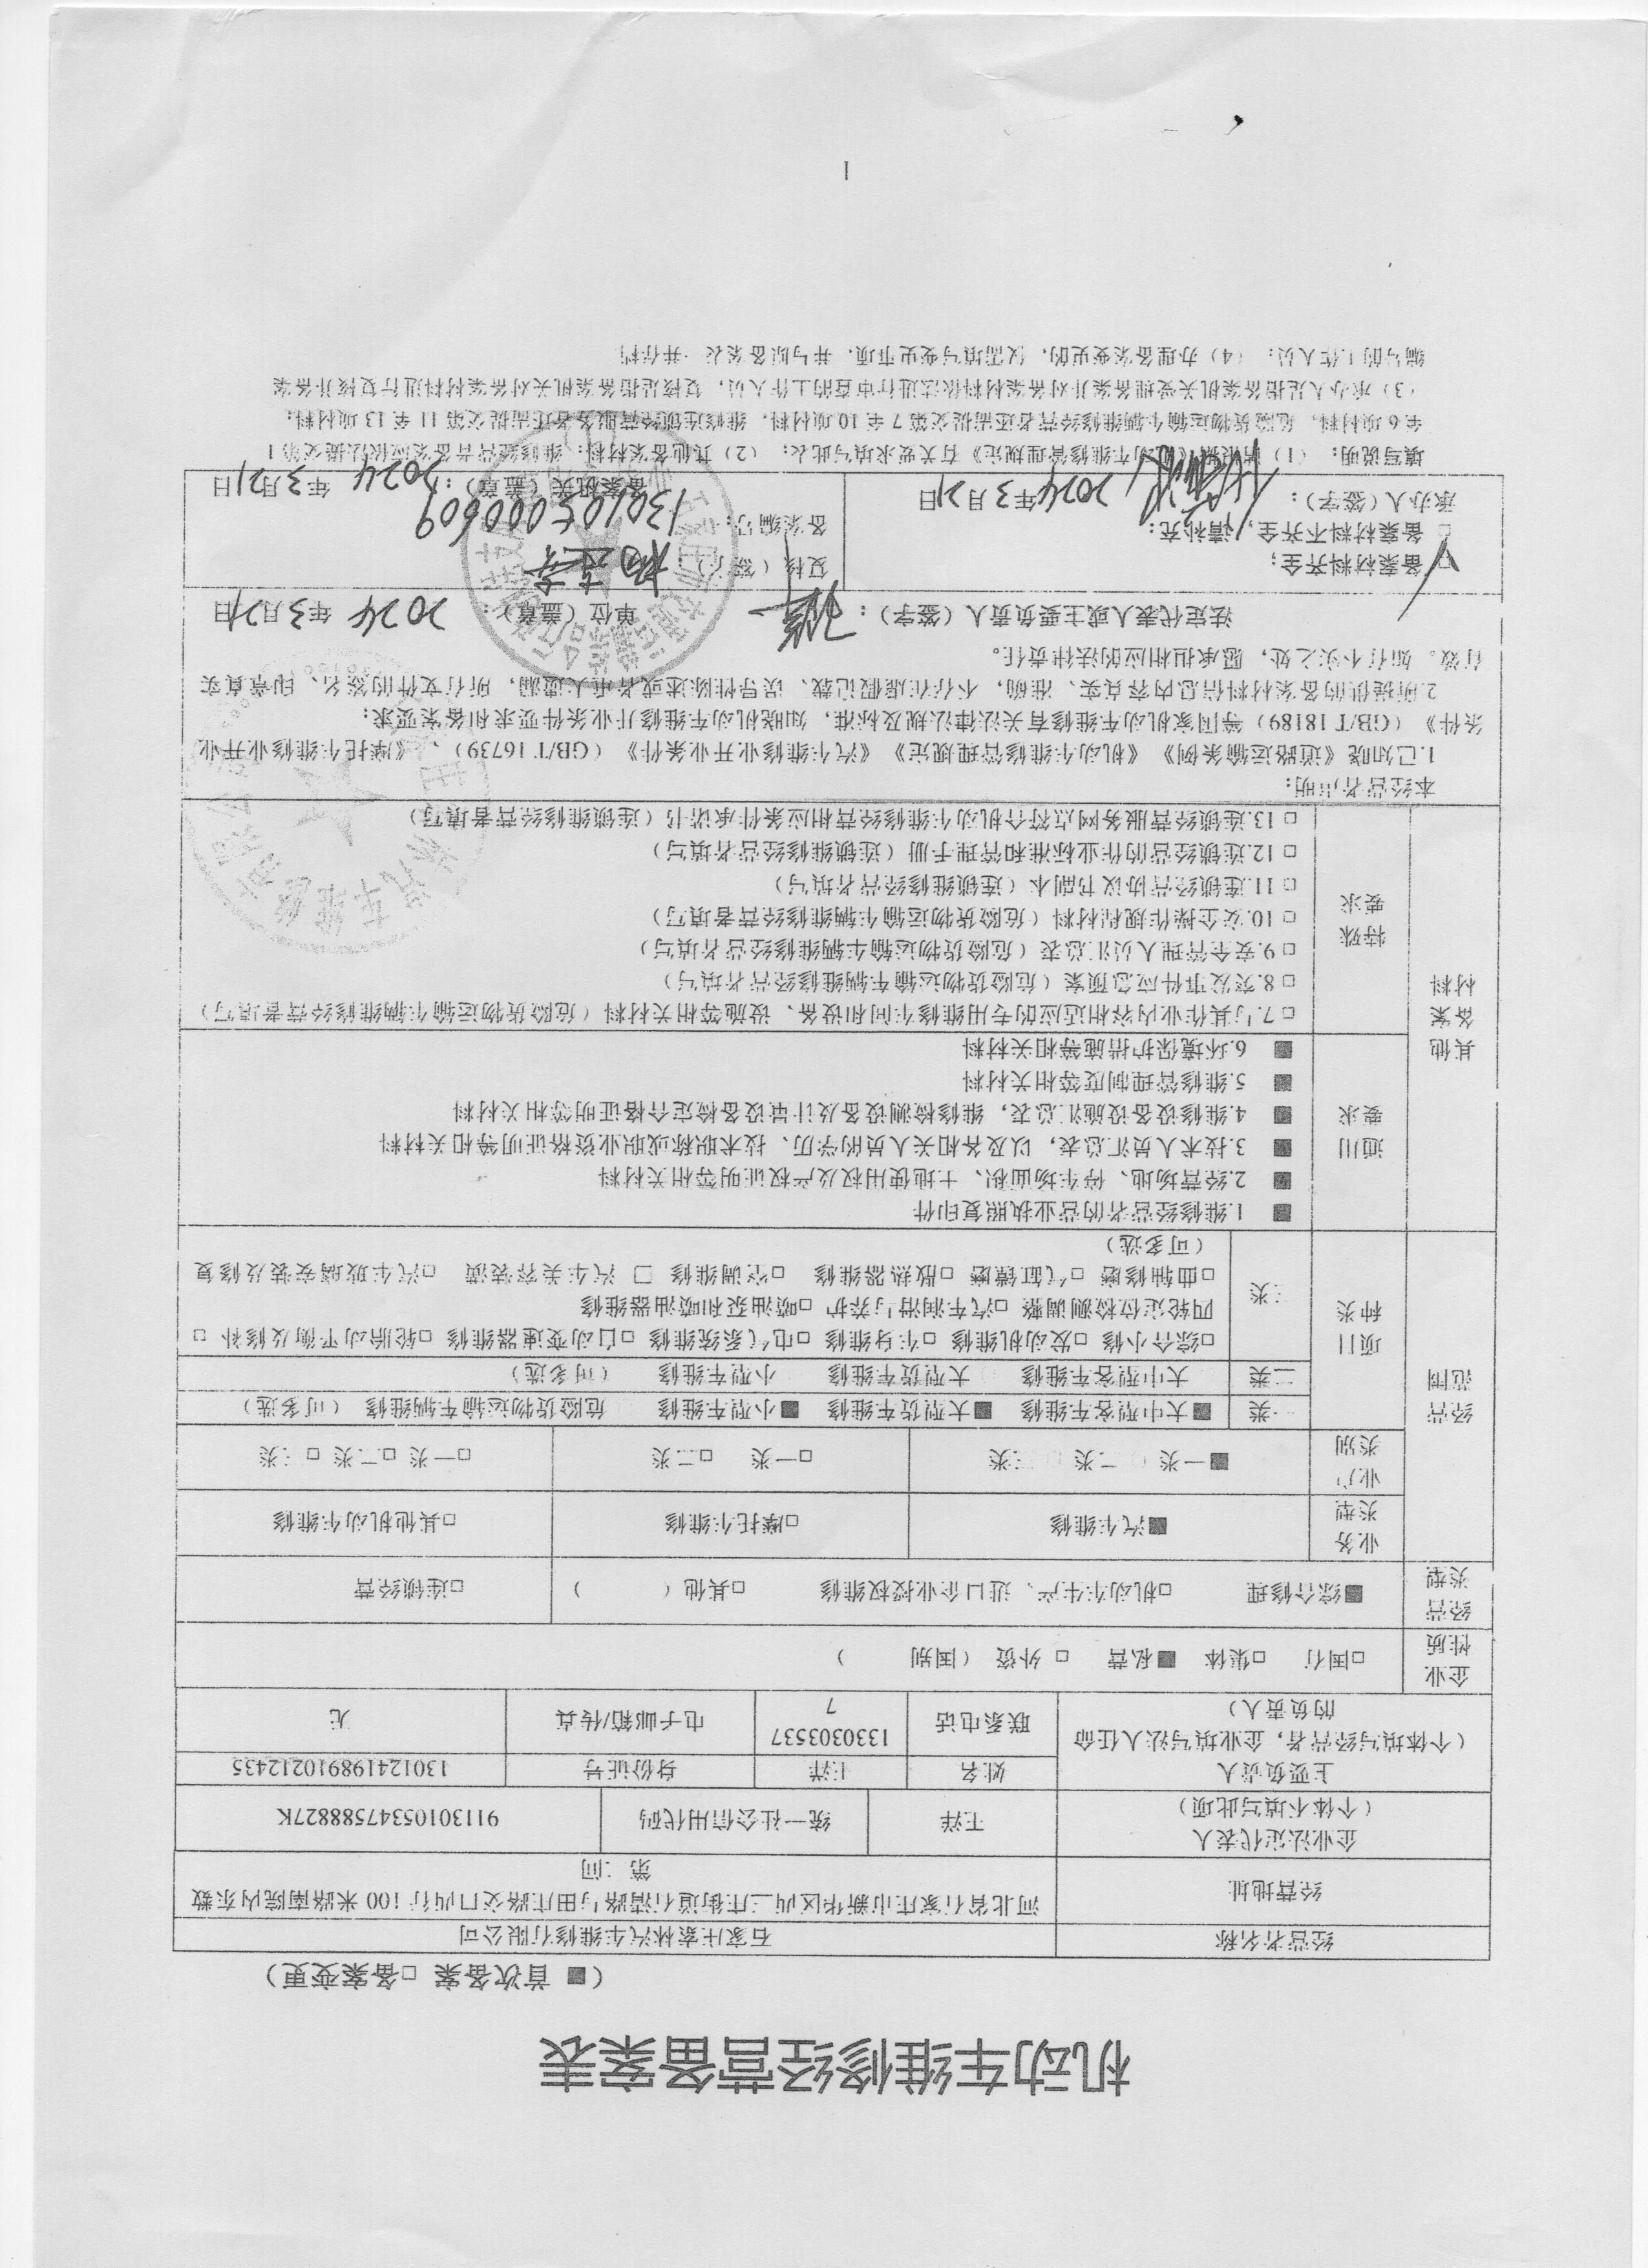 机动车维修经营备案表
（■ 首次备案 □备案变更）
经营者名称 石家庄索林汽车维修有限公司
经营地址 河北省石家庄市新华区西三庄街道石清路与田庄路交口西行100米路南院内东数
第二间
企业法定代表人
（个体不填写此项） 王洋 统一社会信用代码 91130105347588827K
主要负责人
（个体填写经营者，企业填写法人任命
的负责人） 姓名 王洋 身份证号 130124198910212435
联系电话 1330303537
7 电子邮箱/传真 无
企业
性质 □国有 □集体 ■私营 □ 外资（国别 ）
经营
类型 ■综合修理 □机动车生产、进口企业授权维修 □其他（ ） □连锁经营
经营
范围
业务
类型 ■汽车维修 □摩托车维修 □其他机动车维修
业户
类别 ■一类 二类 三类 □一类 □二类 □一类 □二类 □三类
项目
种类
一类 ■大中型客车维修 ■大型货车维修 ■小型车维修 危险货物运输车辆维修 （可多选）
二类 大中型客车维修 大型货车维修 小型车维修 （可多选）
三类 □综合小修 □发动机维修 □车身维修 □电气系统维修 □自动变速器维修 □轮胎动平衡及修补 □
四轮定位检测调整 □汽车润滑与养护 □喷油泵和喷油器维修
□曲轴修磨 □气缸镗磨 □散热器维修 □空调维修 □ 汽车美容装潢 □汽车玻璃安装及修复
（可多选）
其他
备案
材料
通用
要求
■ 1.维修经营者的营业执照复印件
■ 2.经营场地、停车场面积、土地使用权及产权证明等相关材料
■ 3.技术人员汇总表，以及各相关人员的学历、技术职称或职业资格证明等相关材料
■ 4.维修设备设施汇总表，维修检测设备及计量设备检定合格证明等相关材料
■ 5.维修管理制度等相关材料
■ 6.环境保护措施等相关材料
特殊
要求
□7.与其作业内容相适应的专用维修车间和设备、设施等相关材料（危险货物运输车辆维修经营者填写）
□8.突发事件应急预案（危险货物运输车辆维修经营者填写）
□9.安全管理人员汇总表（危险货物运输车辆维修经营者填写）
□10.安全操作规程材料（危险货物运输车辆维修经营者填写）
□11.连锁经营协议书副本（连锁维修经营者填写）
□12.连锁经营的作业标准和管理手册（连锁维修经营者填写）
□13.连锁经营服务网点符合机动车维修经营相应条件承诺书（连锁维修经营者填写）
本经营者声明：
1.已知晓《道路运输条例》《机动车维修管理规定》《汽车维修业开业条件》（GB/T 16739）、《摩托车维修业开业
条件》（GB/T 18189）等国家机动车维修有关法律法规及标准，知晓机动车维修开业条件要求和备案要求；
2.所提供的备案材料信息内容真实、准确，不存在虚假记载、误导性陈述或者重大遗漏，所有文件的签名、印章真实
有效。如有不实之处，愿承担相应的法律责任。
法定代表人或主要负责人（签字）： 单位（盖章）： 2024年3月21日
□ 备案材料齐全；
□ 备案材料不齐全，请补充：
承办人（签字）： 2024年3月21日
复核（签字）：
备案编号： 130105000609
备案机关（盖章）： 2024年3月21日
填写说明：（1）请依据《机动车维修管理规定》有关要求填写此表；（2）其他备案材料：维修经营者备案应依法提交第1
至6项材料，危险货物运输车辆维修经营者还需提交第7至10项材料，维修连锁经营服务者还需提交第11至13项材料；
（3）承办人是指备案机关受理备案并对备案材料依法进行审查的工作人员，复核是指备案机关对备案材料进行复核并备案
编号的工作人员；（4）办理备案变更的，仅需填写变更事项，并与原备案表一并存档
1